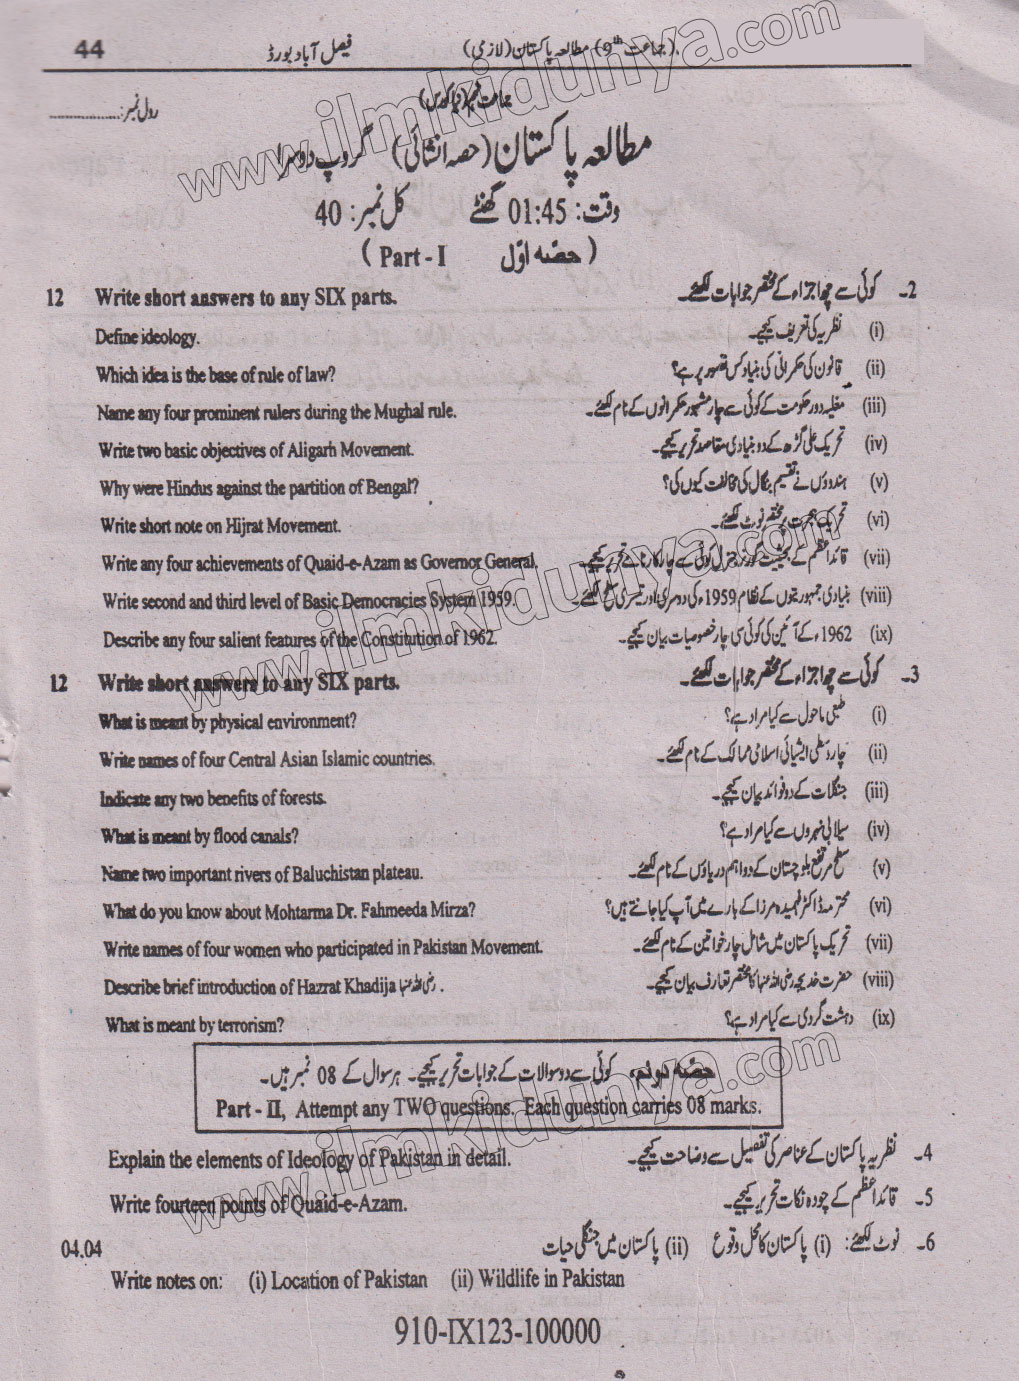 44 فیصل آباد بورڈ (جماعت 9th) مطالعہ پاکستان (لازمی)
رول نمبر:.................. جماعت نہم (نیا کورس)
مطالعہ پاکستان (حصہ انشائی) گروپ دوسرا
وقت: 01:45 گھنٹے کل نمبر: 40
(Part - I حصّہ اوّل)
12 Write short answers to any SIX parts. 2۔ کوئی سے چھ اجزاء کے مختصر جوابات لکھئے۔
Define ideology. (i) نظریہ کی تعریف کیجیے۔
Which idea is the base of rule of law? (ii) قانون کی حکمرانی کی بنیاد کس تصور پر ہے؟
Name any four prominent rulers during the Mughal rule. (iii) مغلیہ دور حکومت کے کوئی سے چار مشہور حکمرانوں کے نام لکھئے۔
Write two basic objectives of Aligarh Movement. (iv) تحریک علی گڑھ کے دو بنیادی مقاصد تحریر کیجیے۔
Why were Hindus against the partition of Bengal? (v) ہندوؤں نے تقسیم بنگال کی مخالفت کیوں کی؟
Write short note on Hijrat Movement. (vi) تحریک ہجرت پر مختصر نوٹ لکھئے۔
Write any four achievements of Quaid-e-Azam as Governor General. (vii) قائداعظم کے بحیثیت گورنر جنرل کوئی سے چار کارنامے تحریر کیجیے۔
Write second and third level of Basic Democracies System 1959. (viii) بنیادی جمہوریتوں کے نظام 1959ء کی دوسری اور تیسری سطح لکھئے۔
Describe any four salient features of the Constitution of 1962. (ix) 1962ء کے آئین کی کوئی سی چار خصوصیات بیان کیجیے۔
12 Write short answers to any SIX parts. 3۔ کوئی سے چھ اجزاء کے مختصر جوابات لکھئے۔
What is meant by physical environment? (i) طبعی ماحول سے کیا مراد ہے؟
Write names of four Central Asian Islamic countries. (ii) چار وسطی ایشیائی اسلامی ممالک کے نام لکھئے۔
Indicate any two benefits of forests. (iii) جنگلات کے دو فوائد بیان کیجیے۔
What is meant by flood canals? (iv) سیلابی نہروں سے کیا مراد ہے؟
Name two important rivers of Baluchistan plateau. (v) سطح مرتفع بلوچستان کے دو اہم دریاؤں کے نام لکھئے۔
What do you know about Mohtarma Dr. Fahmeeda Mirza? (vi) محترمہ ڈاکٹر فہمیدہ مرزا کے بارے میں آپ کیا جانتے ہیں؟
Write names of four women who participated in Pakistan Movement. (vii) تحریک پاکستان میں شامل چار خواتین کے نام لکھئے۔
Describe brief introduction of Hazrat Khadija رضی اللہ عنہا. (viii) حضرت خدیجہ رضی اللہ عنہا کا مختصر تعارف بیان کیجیے۔
What is meant by terrorism? (ix) دہشت گردی سے کیا مراد ہے؟
حصّہ دوئم، کوئی سے دو سوالات کے جوابات تحریر کیجیے۔ ہر سوال کے 08 نمبر ہیں۔
Part - II, Attempt any TWO questions. Each question carries 08 marks.
Explain the elements of Ideology of Pakistan in detail. 4۔ نظریہ پاکستان کے عناصر کی تفصیل سے وضاحت کیجیے۔
Write fourteen points of Quaid-e-Azam. 5۔ قائداعظم کے چودہ نکات تحریر کیجیے۔
04.04 6۔ نوٹ لکھئے: (i) پاکستان کا محل وقوع (ii) پاکستان میں جنگلی حیات
Write notes on: (i) Location of Pakistan (ii) Wildlife in Pakistan
910-IX123-100000
www.ilmkidunya.com
www.ilmkidunya.com
www.ilmkidunya.com